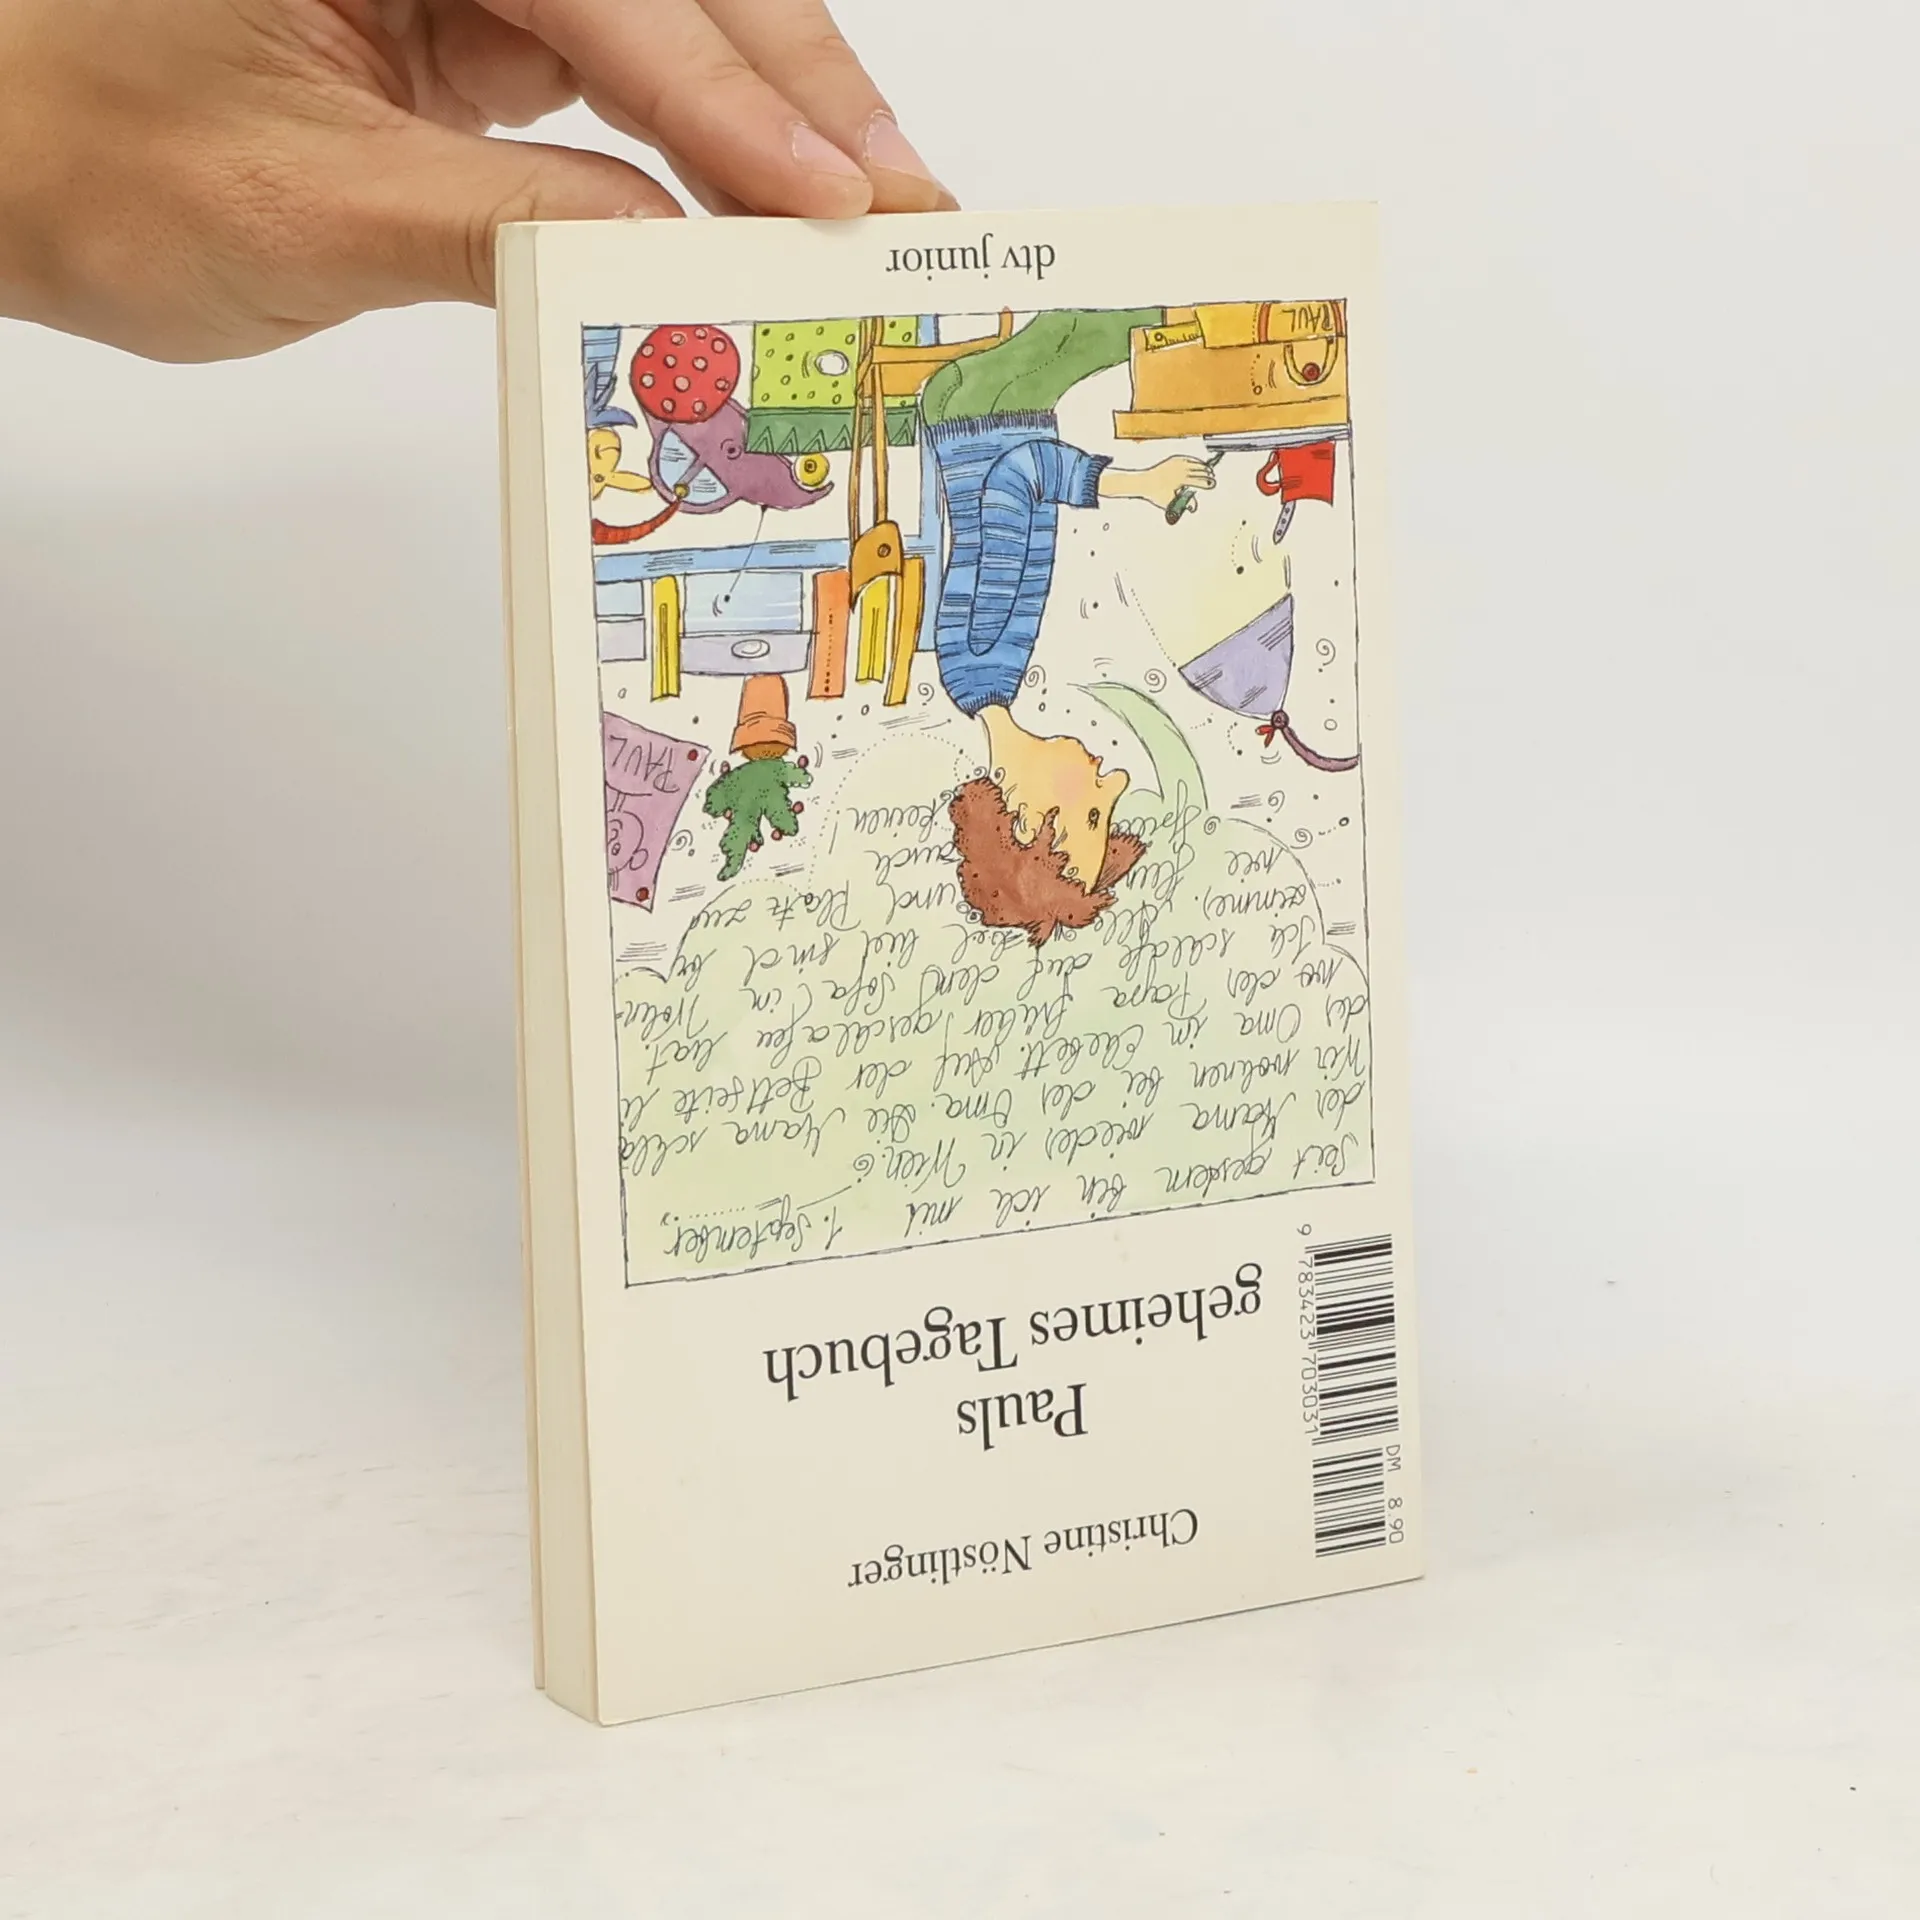 Christine Nöstlinger
Pauls
geheimes Tagebuch
DM 8.90
9 783423 703031
1. September
Seit gestern bin ich mit
der Mama wieder in Wien.
Wir wohnen bei der Oma. Die Mama schlä
der Oma im Ehebett. Auf der Bettseite li
wo der Papa früher geschlafen hat.
Ich schlafe auf dem Sofa (im Wohn-
zimmer). Alle
wie
Spiele
viel sind
und Platz zum
auch keinen!
PAUL
PAUL
dtv junior